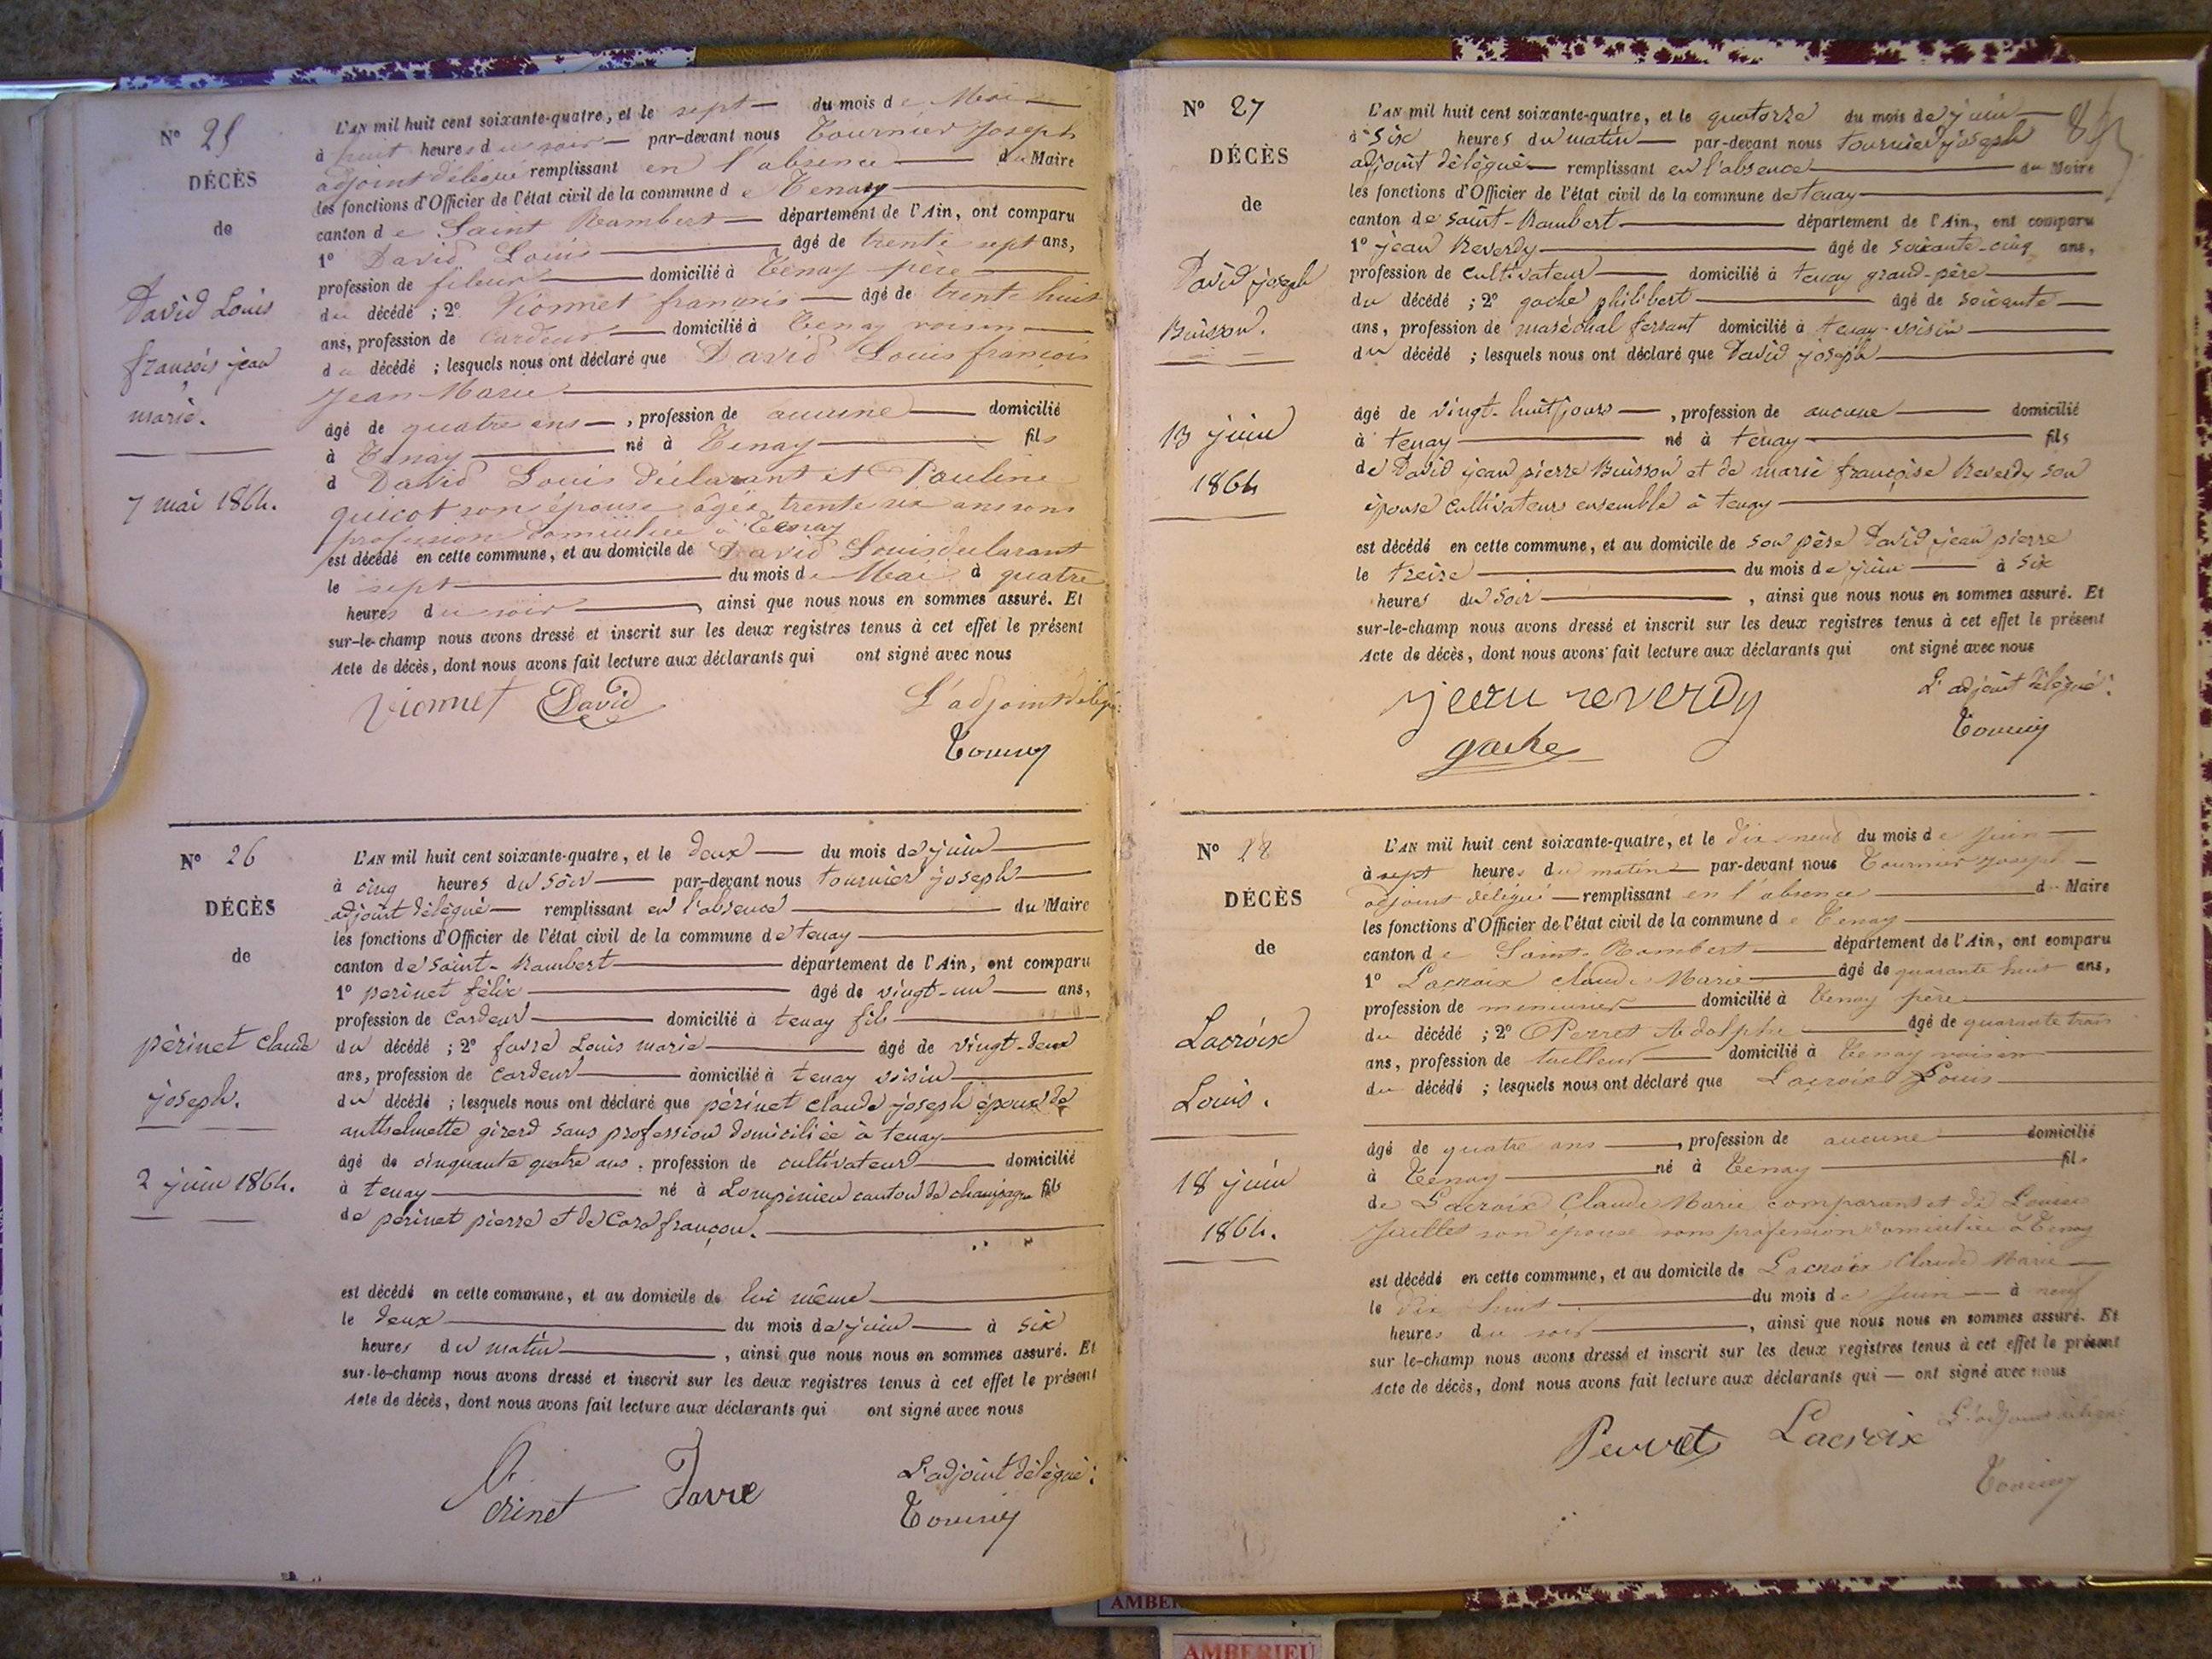 N° 25
DÉCÈS
de
David Louis
françois jean
marie.
7 mai 1864.
L'AN mil huit cent soixante-quatre, et le sept du mois de Mai
à huit heures du soir par-devant nous Tournier Joseph
adjoint délégué remplissant en l'absence du Maire
les fonctions d'Officier de l'état civil de la commune de Tenay
canton de Saint Rambert département de l'Ain, ont comparu
1° David Louis âgé de trente sept ans,
profession de fileur domicilié à Tenay père
du décédé ; 2° Vionnet françois âgé de trente huit
ans, profession de Cardeur domicilié à Tenay voisin
du décédé ; lesquels nous ont déclaré que David Louis françois
Jean Marie
âgé de quatre ans , profession de aucune domicilié
à Tenay né à Tenay fils
d David Louis déclarant et Pauline
guicot son épouse âgée trente six ans sans
profession domiciliée à Tenay
est décédé en cette commune, et au domicile de David Louis déclarant
le sept du mois de Mai à quatre
heures du soir , ainsi que nous nous en sommes assuré. Et
sur-le-champ nous avons dressé et inscrit sur les deux registres tenus à cet effet le présent
Acte de décès, dont nous avons fait lecture aux déclarants qui ont signé avec nous
Vionnet David L'adjoint délégué:
Tournier
N° 26
DÉCÈS
de
périnet claude
joseph.
2 juin 1864.
L'AN mil huit cent soixante-quatre, et le deux du mois de juin
à cinq heures du soir par-devant nous tournier joseph
adjoint délégué remplissant en l'absence du Maire
les fonctions d'Officier de l'état civil de la commune de tenay
canton de saint-Rambert département de l'Ain, ont comparu
1° perinet félix âgé de vingt-un ans,
profession de Cardeur domicilié à tenay fils
du décédé ; 2° favre Louis marie âgé de vingt-deux
ans, profession de cardeur domicilié à tenay voisin
du décédé ; lesquels nous ont déclaré que périnet claude joseph époux de
anthelmette girerd sans profession domiciliée à tenay
âgé de cinquante quatre ans , profession de cultivateur domicilié
à tenay né à Lompnieu canton de champagne fils
de périnet pierre et de françon.
est décédé en cette commune, et au domicile de lui même
le deux du mois de juin à six
heures du matin , ainsi que nous nous en sommes assuré. Et
sur-le-champ nous avons dressé et inscrit sur les deux registres tenus à cet effet le présent
Acte de décès, dont nous avons fait lecture aux déclarants qui ont signé avec nous
Périnet Favre L'adjoint délégué:
Tournier
N° 27
DÉCÈS
de
David joseph
Buisson.
13 juin
1864
L'AN mil huit cent soixante-quatre, et le quatorze du mois de juin
à six heures du matin par-devant nous tournier joseph
adjoint délégué remplissant en l'absence du Maire
les fonctions d'Officier de l'état civil de la commune de tenay
canton de saint-Rambert département de l'Ain, ont comparu
1° jean Reverdy âgé de soixante-cinq ans,
profession de cultivateur domicilié à tenay grand-père
du décédé ; 2° gache philibert âgé de soixante
ans, profession de maréchal ferrant domicilié à tenay-voisin
du décédé ; lesquels nous ont déclaré que David joseph
âgé de vingt-huit jours , profession de aucune domicilié
à tenay né à tenay fils
de David jean pierre Buisson et de marie françoise Reverdy son
épouse cultivateurs ensemble à tenay
est décédé en cette commune, et au domicile de son père David jean pierre
le treize du mois de juin à six
heures du soir , ainsi que nous nous en sommes assuré. Et
sur-le-champ nous avons dressé et inscrit sur les deux registres tenus à cet effet le présent
Acte de décès, dont nous avons fait lecture aux déclarants qui ont signé avec nous
jean reverdy L'adjoint délégué:
gache Tournier
N° 28
DÉCÈS
de
Lacroix
Louis.
18 juin
1864.
L'AN mil huit cent soixante-quatre, et le dix neuf du mois de Juin
à sept heures du matin par-devant nous Tournier Joseph
adjoint délégué remplissant en l'absence du Maire
les fonctions d'Officier de l'état civil de la commune de Tenay
canton de Saint-Rambert département de l'Ain, ont comparu
1° Lacroix claude Marie âgé de quarante huit ans,
profession de menuisier domicilié à Tenay père
du décédé ; 2° Perret Adolphe âgé de quarante trois
ans, profession de tailleur domicilié à Tenay voisin
du décédé ; lesquels nous ont déclaré que Lacroix Louis
âgé de quatre ans , profession de aucune domicilié
à Tenay né à Tenay fils
de Lacroix Claude Marie comparant et de Louise
Juillet son épouse sans profession domiciliée à Tenay
est décédé en cette commune, et au domicile de Lacroix Claude Marie
le dix huit du mois de Juin à neuf
heures du soir , ainsi que nous nous en sommes assuré. Et
sur le-champ nous avons dressé et inscrit sur les deux registres tenus à cet effet le présent
Acte de décès, dont nous avons fait lecture aux déclarants qui — ont signé avec nous
Perret Lacroix L'adjoint délégué:
Tournier
AMBERIEU